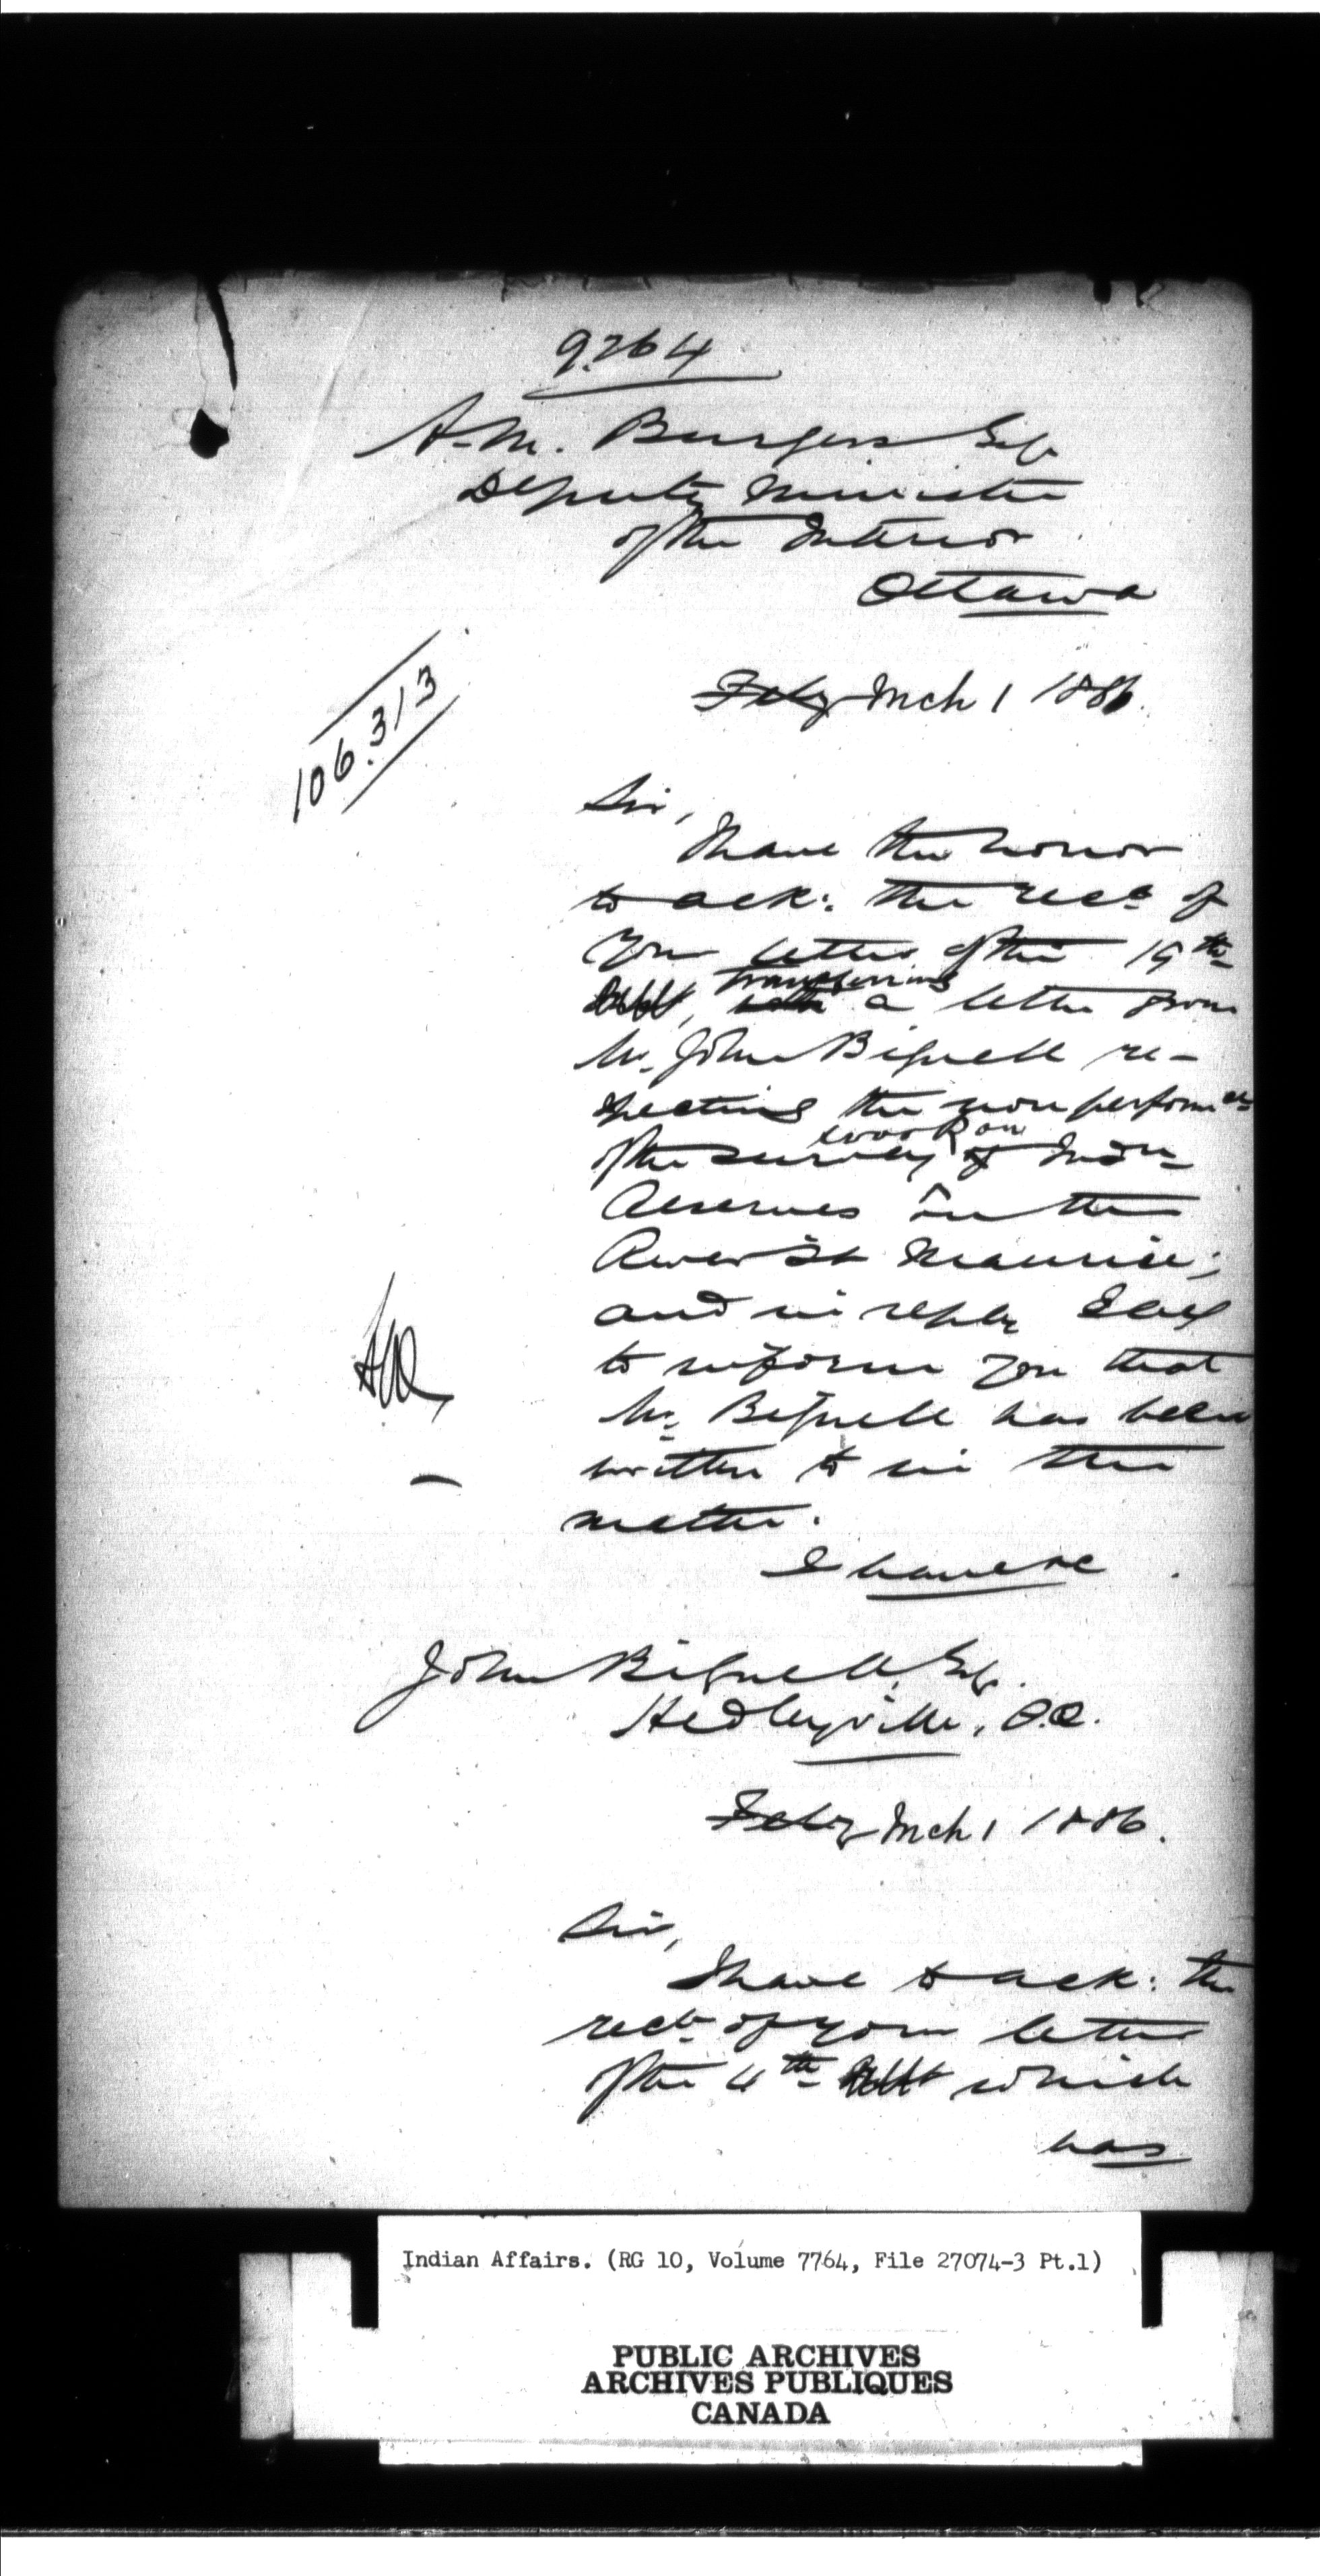 9264
A.M. Burgess Esq
Deputy Minister
of the Interior
Ottawa
106.313
Feby Mch 1 1886.
Sir,
I have the honor
to ack: the rect of
your letter of the 19th
Ult, transferring
a letter from
Mr. John Bignell re-
specting the non performce
work on
of the survey of Indn
Reserves on the
River St Maurice;
and in reply I beg
to inform you that
Mr. Bignell has been
written to in this
matter.
I have &c
John Bignell, Esq.
Hedleyville, P.Q.
Feby Mch 1 1886.
Sir,
I have to ack: the
rect of your letter
of the 4th Ult which
has
Indian Affairs. (RG 10, Volume 7764, File 27074-3 Pt.1)
PUBLIC ARCHIVES
ARCHIVES PUBLIQUES
CANADA